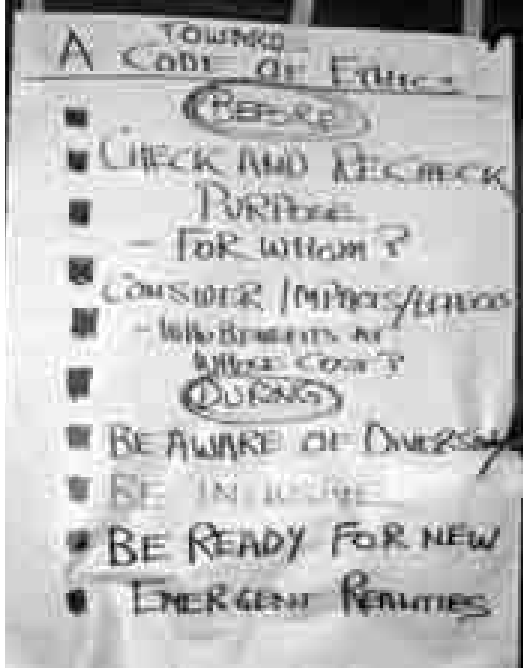 TOWARD
A CODE OF ETHICS
BEFORE
CHECK AND RECHECK
PURPOSE
- FOR WHOM?
CONSIDER /IMPACTS/
- WHO BENEFITS AT
WHOSE COST?
DURING
BE AWARE OF DIVERSITY
BE INCLUSIVE
BE READY FOR NEW
EMERGENT REALITIES